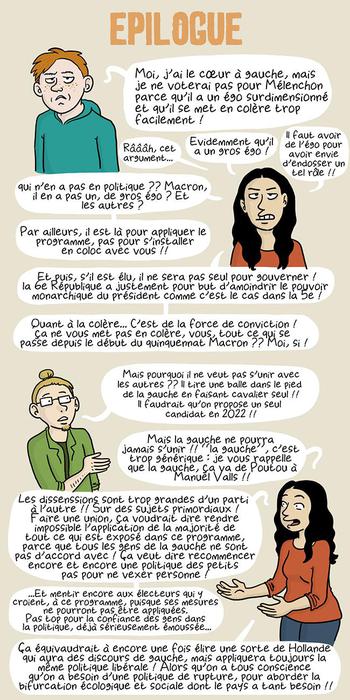 EPILOGUE
Moi, j'ai le cœur à gauche, mais
je ne voterai pas pour Mélenchon
parce qu'il a un égo surdimensionné
et qu'il se met en colère trop
facilement !
Râââh, cet
argument...
Evidemment qu'il
a un gros égo !
Il faut avoir
de l'égo pour
avoir envie
d'endosser un
tel rôle !!
qui n'en a pas en politique ?? Macron,
il en a pas un, de gros égo ? Et
les autres ?
Par ailleurs, il est là pour appliquer le
programme, pas pour s'installer
en coloc avec vous !!
Et puis, s'il est élu, il ne sera pas seul pour gouverner !
la 6e République a justement pour but d'amoindrir le pouvoir
monarchique du président comme c'est le cas dans la 5e !
Quant à la colère... C'est de la force de conviction !
Ça ne vous met pas en colère, vous, tout ce qui se
passe depuis le début du quinquennat Macron ?? Moi, si !
Mais pourquoi il ne veut pas s'unir avec
les autres ?? Il tire une balle dans le pied
de la gauche en faisant cavalier seul !!
Il faudrait qu'on propose un seul
candidat en 2022 !!
Mais la gauche ne pourra
jamais s'unir !! "la gauche", c'est
trop générique : je vous rappelle
que la gauche, ça va de Poutou à
Manuel Valls !!
Les dissensions sont trop grandes d'un parti
à l'autre !! Sur des sujets primordiaux !
Faire une union, ça voudrait dire rendre
impossible l'application de la majorité de
tout ce qui est exposé dans ce programme,
parce que tous les gens de la gauche ne sont
pas d'accord avec ! Ça veut dire recommencer
encore et encore une politique des petits
pas pour ne vexer personne !
...Et mentir encore aux électeurs qui y
croient, à ce programme, puisque ses mesures
ne pourront pas être appliquées.
Pas top pour la confiance des gens dans
la politique, déjà sérieusement émoussée...
Ça équivaudrait à encore une fois élire une sorte de Hollande
qui aura des discours de gauche, mais appliquera toujours la
même politique libérale ! Alors qu'on a tous conscience
qu'on a besoin d'une politique de rupture, pour aborder la
bifurcation écologique et sociale dont le pays a tant besoin !!